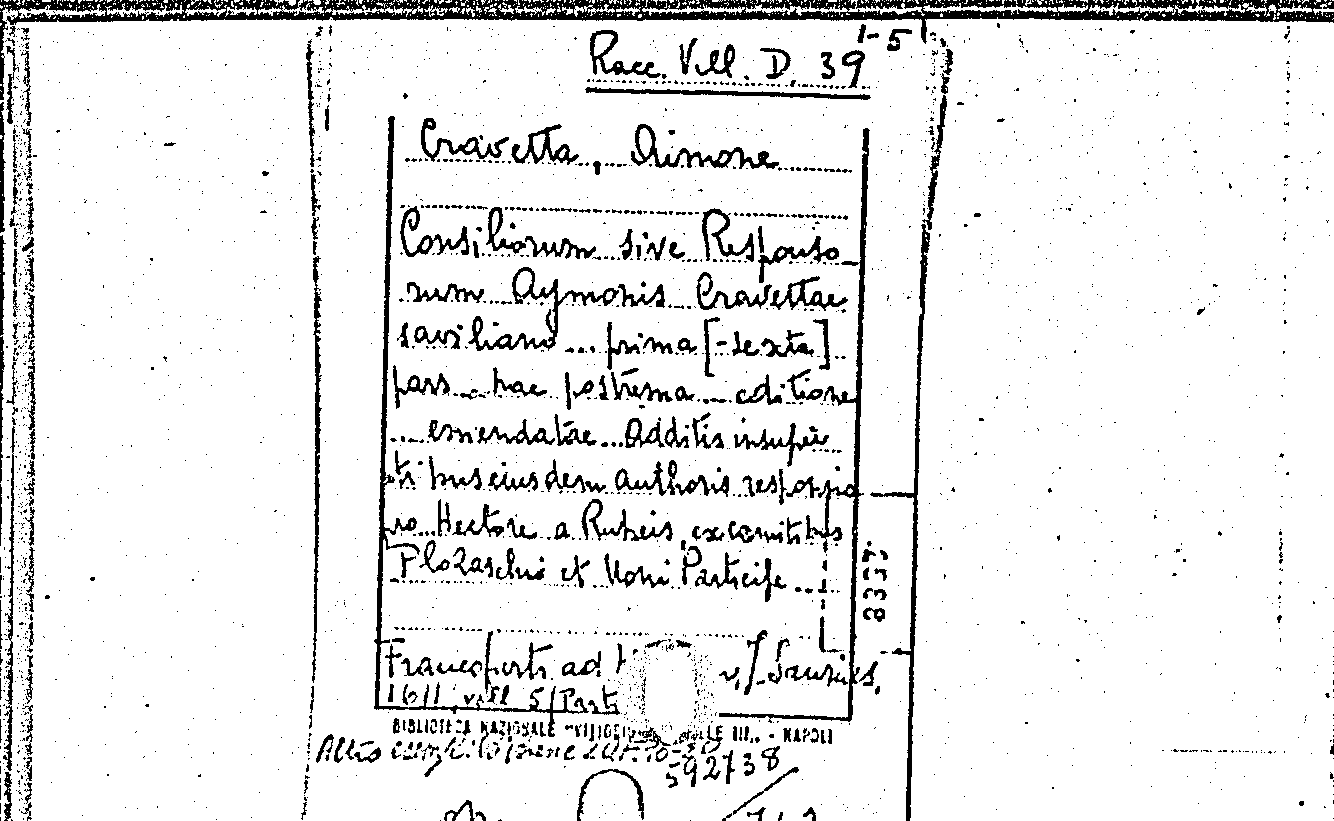 1-5
Racc. Vill. D. 39
Cravetta, Aimone
Consiliorum sive Responso-
rum Aymonis Cravettae
saviliano ... prima [-sexta]
pars ... hac postrema ... editione
... emendatae ... Additis insuper
tribus eiusdem authoris responsio
ro Hectore a Rubeis, ex comitibus
Plozaschi et Noni Participe ...
8337
Francofurti ad
1611, voll 5/Parti
BIBLIOTECA NAZIONALE LE III,, - NAPOLI
Altro
592738